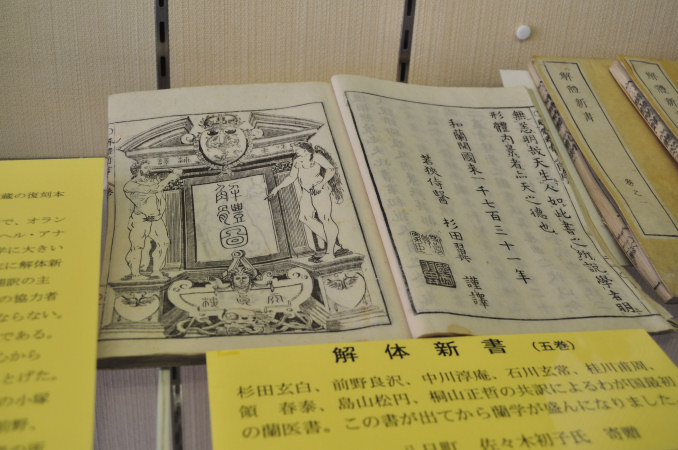 蔵の復刻本
で、オラン
ヘル・アナ
学に大きい
に解体新
翻訳の主
の協力者
ならない。
である。
心から
とげた。
の小塚
前野、
解體圖
形體内景者
和蘭開國來一千七百三十一年
若狹侍醫 杉田
謹譯
解體新書
巻之
解體新書
解体新書(五巻)
杉田玄白、前野良沢、中川淳庵、石川玄常、桂川甫周、
嶺 春泰、鳥山松円、桐山正哲の共訳によるわが国最初
の蘭医書。この書が出てから蘭学が盛んになりました。
八日町 佐々木初子氏 寄贈